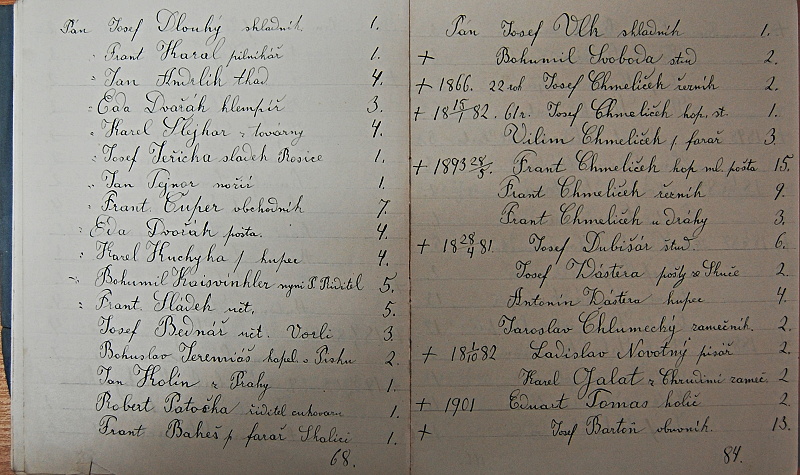 Pán Josef Dlouhý skladník. 1.
" Frant Karal pilnikář 1.
" Jan Andrlik tkad 4.
" Eda Dvořák klempíř 3.
" Karel Slejhar z továrny 4.
" Josef Jeřicha sladek Rosice 1.
" Jan Pejnor nožíř 1.
" Frant. Cuper obchodník 7.
" Eda Dvořák pošta. 4.
" Karel Kuchyka / kupec 4.
" Bohumil Kaiswinkler nyní Ř. Ředitel 5.
" Frant. Sládek učt. 5.
Josef Bednář učt. Vorli 3.
Bohuslav Jeremiáš kapel. v Písku 2.
Jan Kolín z Prahy 1.
Robert Patočka ředitel cukovaru 1.
Frant Bakeš p farář Skalici 1.
68.
Pán Josef Vlk skladník 1.
+ Bohumil Svoboda stud 2.
+ 1866. 22 rok Josef Chmelíček řezník 2.
+ 18 15/1 82. 61 r. Josef Chmelíček kop. st. 1.
Vilim Chmelíček / farář 3.
+ 1893 28/5. Frant Chmelíček kop ml. pošta 15.
Frant Chmelíček řezník 9.
Frant Chmelíček u dráhy 3.
+ 18 28/4 81. Josef Dubišár stud. 6.
Josef Vástera pošty ze Skuče 2.
Antonín Vástera kupec 4.
Jaroslav Chlumecký zamečník. 2.
+ 18 1/10 82 Ladislav Novotný písář 2.
Karel Galat z Chrudimi zameč. 2
+ 1901 Eduart Tomas holič 2
+ Josef Bartoň obuvník. 13.
84.